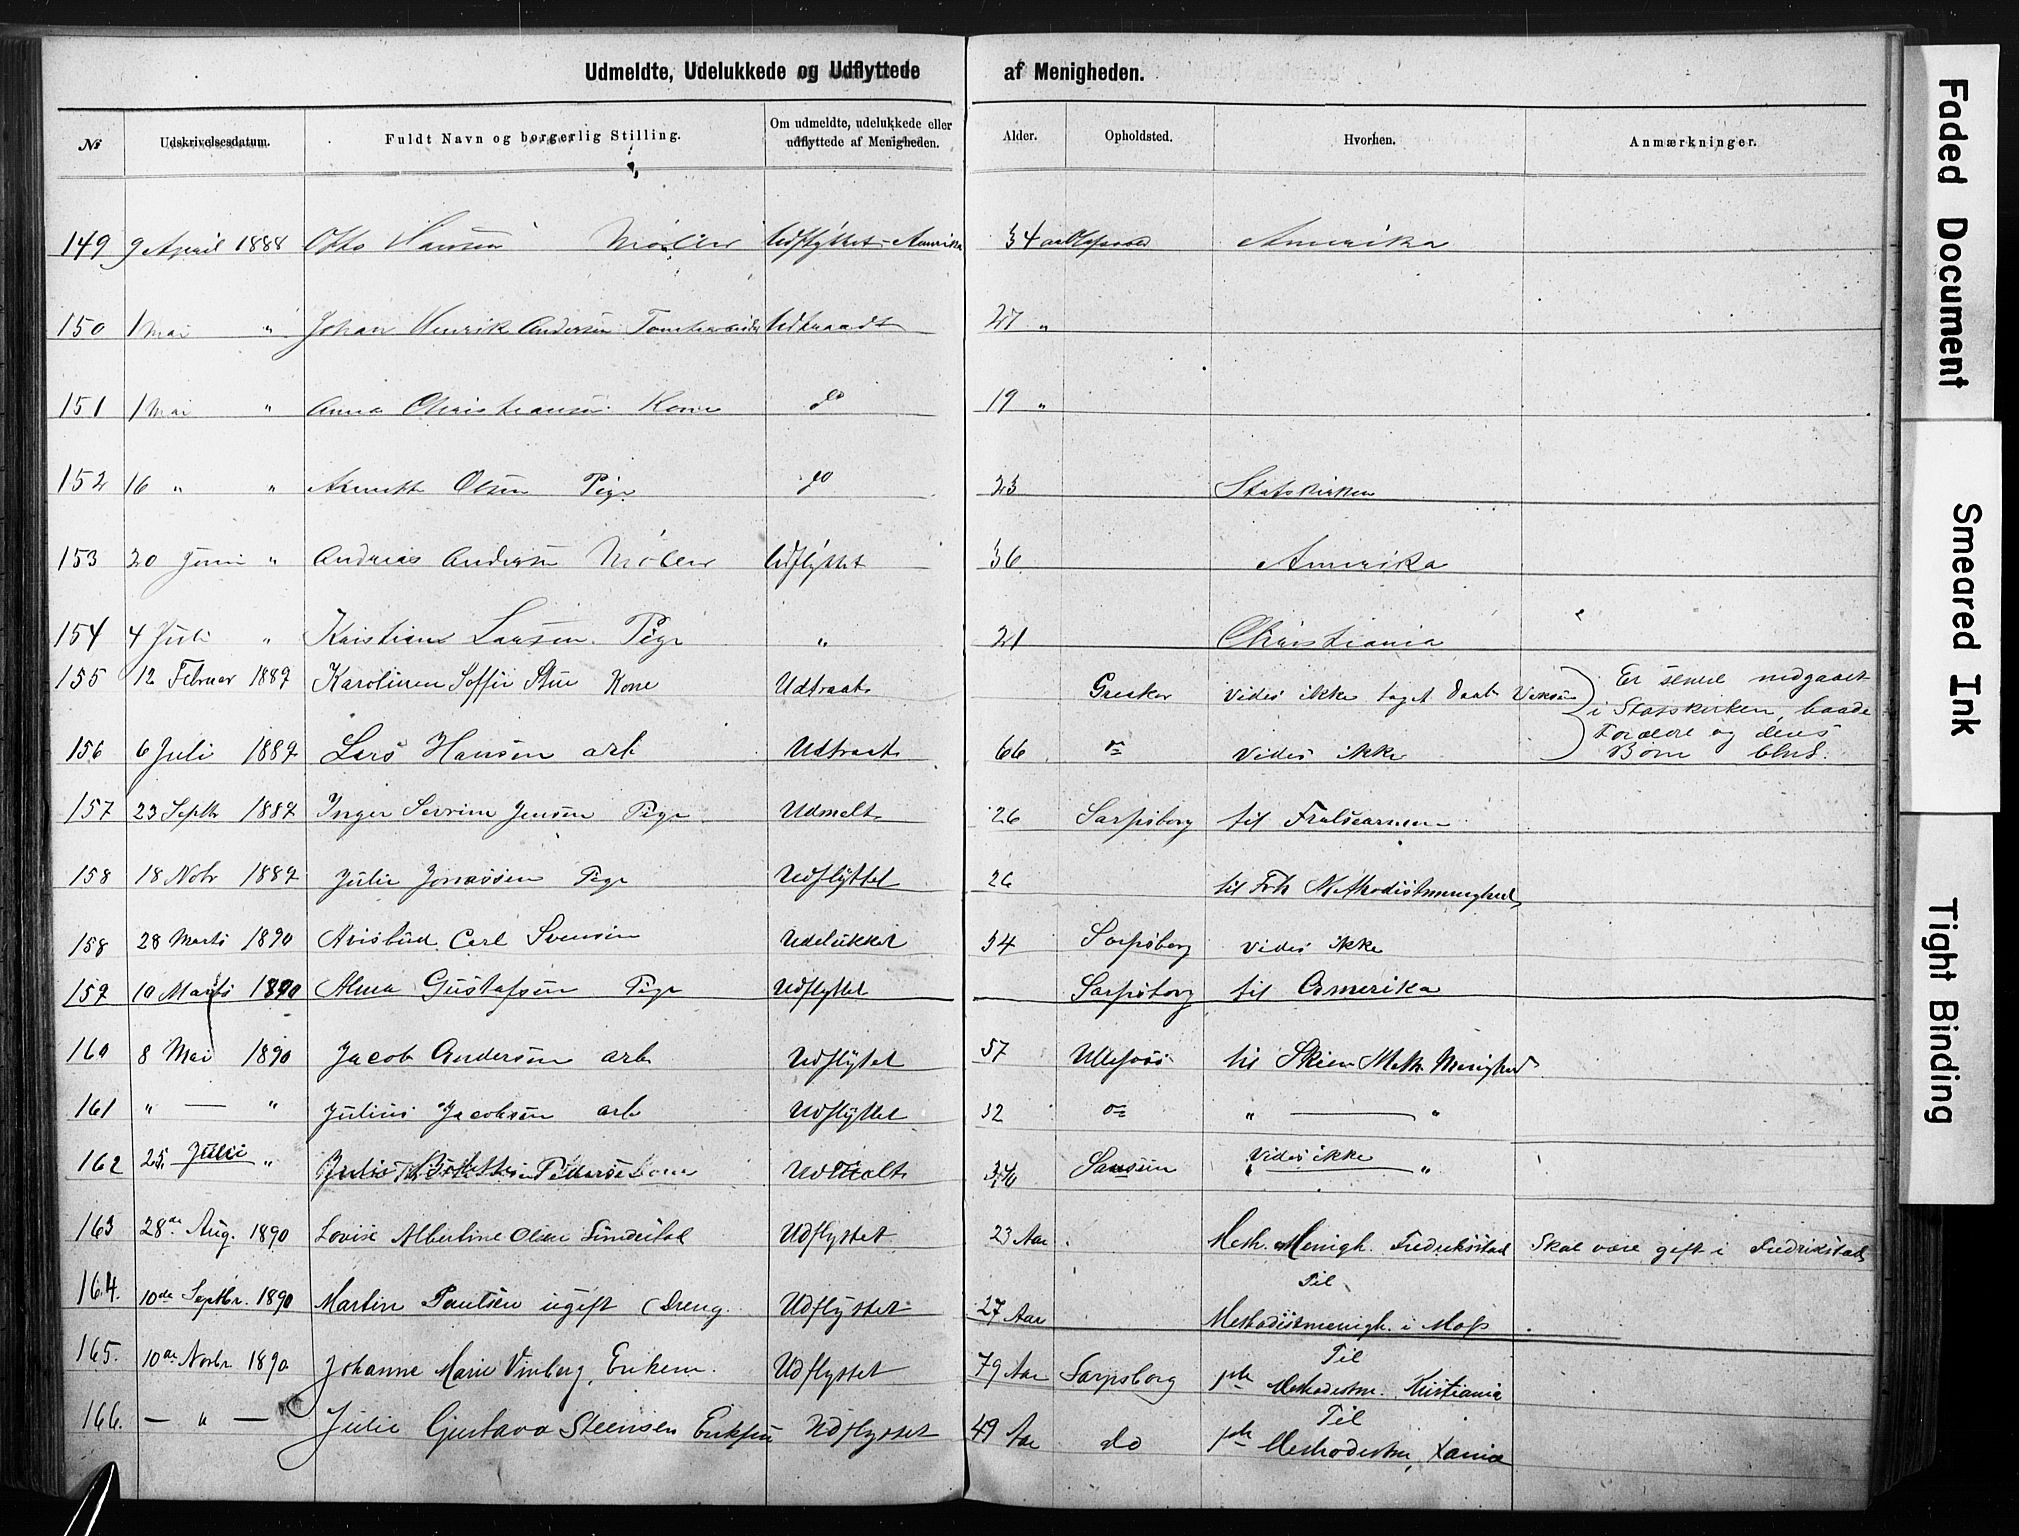 Udmeldte, Udelukkede og Udflyttede af Menigheden.
№ Udskrivelsesdatum. Fuldt Navn og borgerlig Stilling. Om udmeldte, udelukkede eller udflyttede af Menigheden. Alder. Opholdsted. Hvorhen. Anmærkninger.
149 9 April 1888 Otto Hansen Udflyttet Amerika 34 Amerika
150 1 Mai " Johan Henrik Andersen Udtraadt 27 "
151 1 Mai " Anna Christiansen Kone do 19 "
152 16 " " Olsen Pige do 23 Statskirken
153 20 Juni " Andreas Andersen Udflyttet 36 Amerika
154 4 Juli " Kristiane Larsen Pige " 21 Christiania
155 12 Februar 1889 Karolinen Soffie Kone Udtraat Greaker Vides ikke taget Daab Er senere nedgaaet
156 6 Juli 1889 Lars Hansen arb Udtraat 66 do Vides ikke i Statskirken, baade Forældre og deres Børn
157 23 Septbr 1889 Inger Sevrine Jensen Pige Udmelt 26 Sarpsborg til Frelsearmeen
158 18 Nobr 1889 Julie Jonassen Pige Udflyttet 26 til Frh Methodistmenighed
158 28 Marts 1890 Carl Svensen Udelukket 34 Sarpsborg Vides ikke
159 10 Marts 1890 Alma Gustafsen Pige Udflyttet Sarpsborg til Amerika
160 8 Mai 1890 Jacob Andersen arb Udflyttet 57 Ulefoss til Skien Meth Menighed
161 " — " Julius Jacobsen arb Udflyttet 32 do " — "
162 25 Juli " Julie Vides ikke "
163 28de Aug. 1890 Lovise Albertine Olsen Udflyttet 23 Aar Meth. Menigh. Fredrikstad Skal være gift i Fredrikstad
164. 10de Septbr. 1890 Martin Paulsen ugift (Dreng. Udflyttet 27 Aar Til Methodistmenigh. i Moss
165. 10de Novbr 1890 Johanne Marie Vinberg, Enkem. Udflyttet 79 Aar Sarpsborg Til Methodistm. Kristiania
166. — " — Julie Gustava Steensen Udflyttet 49 Aar do Til Methodistm, Xania
Faded Document
Smeared Ink
Tight Binding